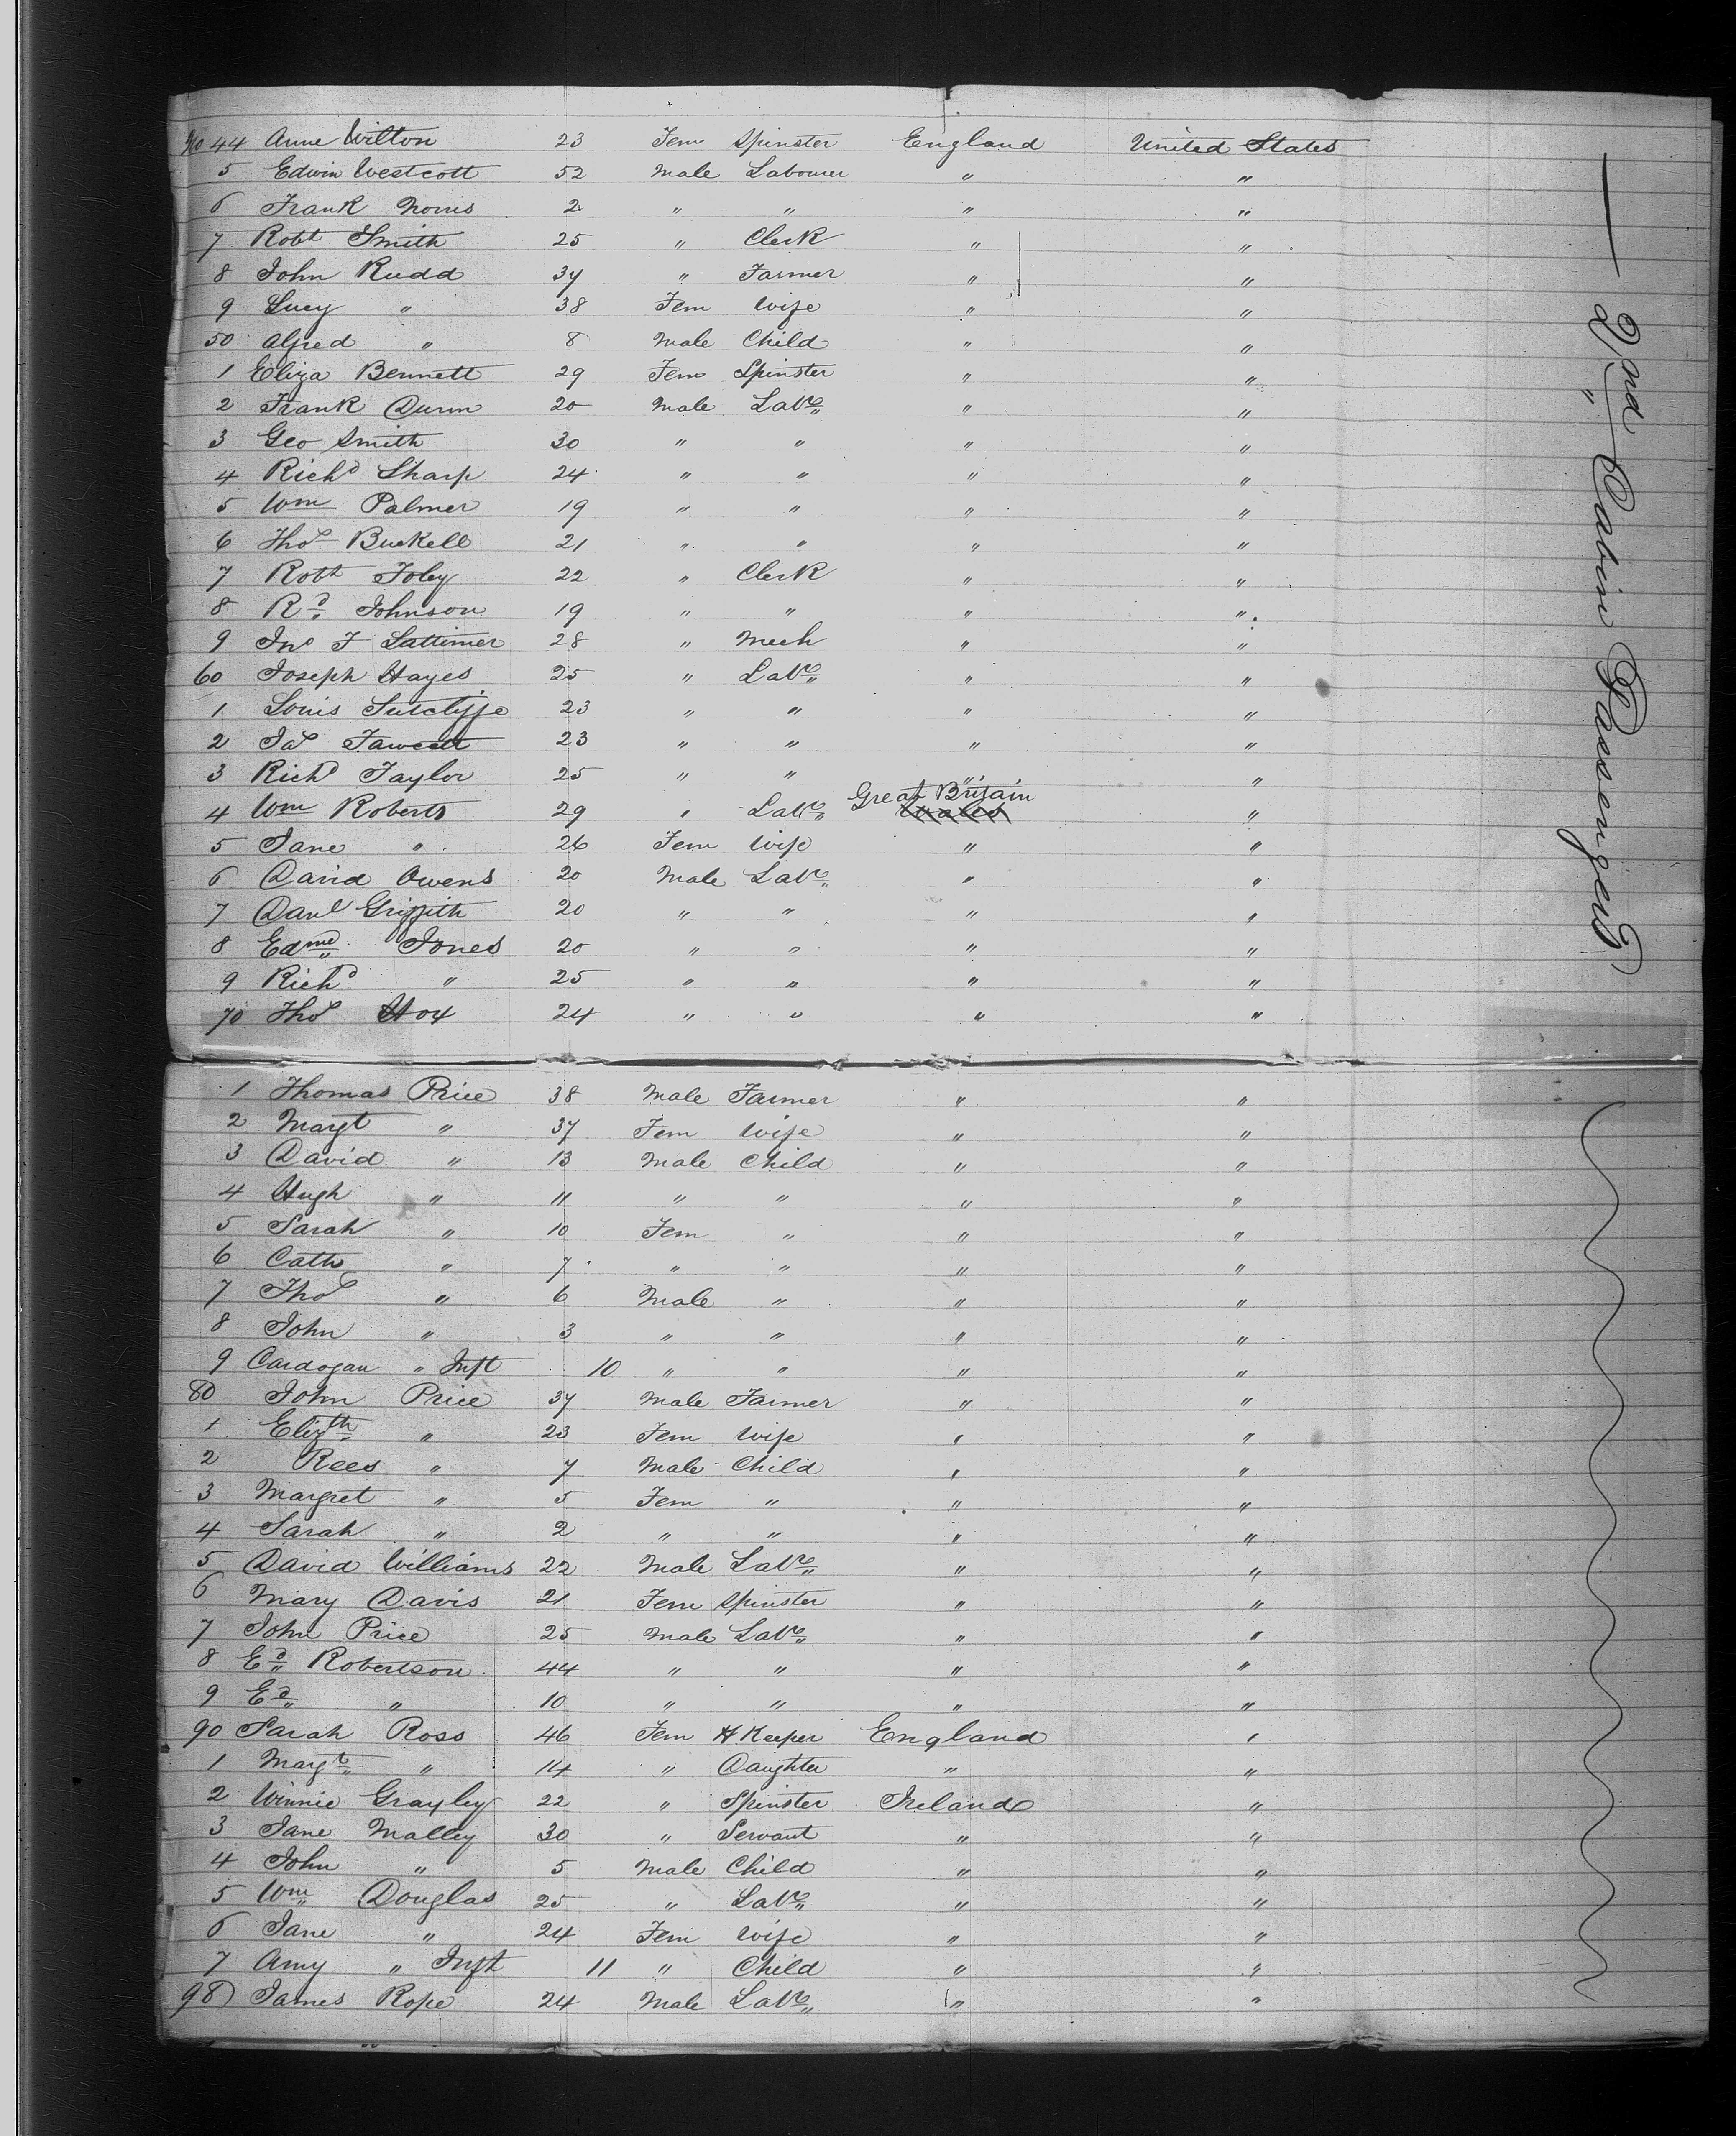 No 44 Anne Wilton 23 Fem Spinster England United States
5 Edwin Westcott 52 Male Labourer " "
6 Frank Norris 2 " " " "
7 Robt Smith 25 " Clerk " "
8 John Rudd 37 " Farmer " "
9 Lucy " 38 Fem Wife " "
50 Alfred " 8 Male Child " "
1 Eliza Bennett 29 Fem Spinster " "
2 Frank Dunn 20 Male Labr " "
3 Geo Smith 30 " " " "
4 Richd Sharp 24 " " " "
5 Wm Palmer 19 " " " "
6 Thos Buckell 21 " " " "
7 Robt Foley 22 " Clerk " "
8 Rd Johnson 19 " " " "
9 Jno F Lattimer 28 " Mech " "
60 Joseph Hayes 25 " Labr " "
1 Louis Sutcliffe 23 " " " "
2 Jas Fawcett 23 " " " "
3 Richd Taylor 25 " " " "
4 Wm Roberts 29 " Labr Great Britain Wales "
5 Jane " 26 Fem Wife " "
6 David Owens 20 Male Labr " "
7 Danl Griffith 20 " " " "
8 Edmd Jones 20 " " " "
9 Richd " 25 " " " "
70 Thos Hox 24 " " " "
1 Thomas Price 38 Male Farmer " "
2 Margt " 37 Fem Wife " "
3 David " 13 Male Child " "
4 Hugh " 11 " " " "
5 Sarah " 10 Fem " " "
6 Cath " 7 " " " "
7 Thos " 6 Male " " "
8 John " 3 " " " "
9 Cardogan " Inft 10 " " " "
80 John Price 37 Male Farmer " "
1 Elizth " 23 Fem Wife " "
2 Rees " 7 Male Child " "
3 Margret " 5 Fem " " "
4 Sarah " 2 " " " "
5 David Williams 22 Male Labr " "
6 Mary Davis 21 Fem Spinster " "
7 John Price 25 Male Labr " "
8 Ed Robertson 44 " " " "
9 Ed " 10 " " " "
90 Sarah Ross 46 Fem H Keeper England "
1 Margt " 14 " Daughter " "
2 Winnie Grayley 22 " Spinster Ireland "
3 Jane Malley 30 " Servant " "
4 John " 5 Male Child " "
5 Wm Douglas 25 " Labr " "
6 Jane " 24 Fem Wife " "
7 Amy " Inft 11 " Child " "
98 James Rope 24 Male Labr " "
2nd Cabin Passengers